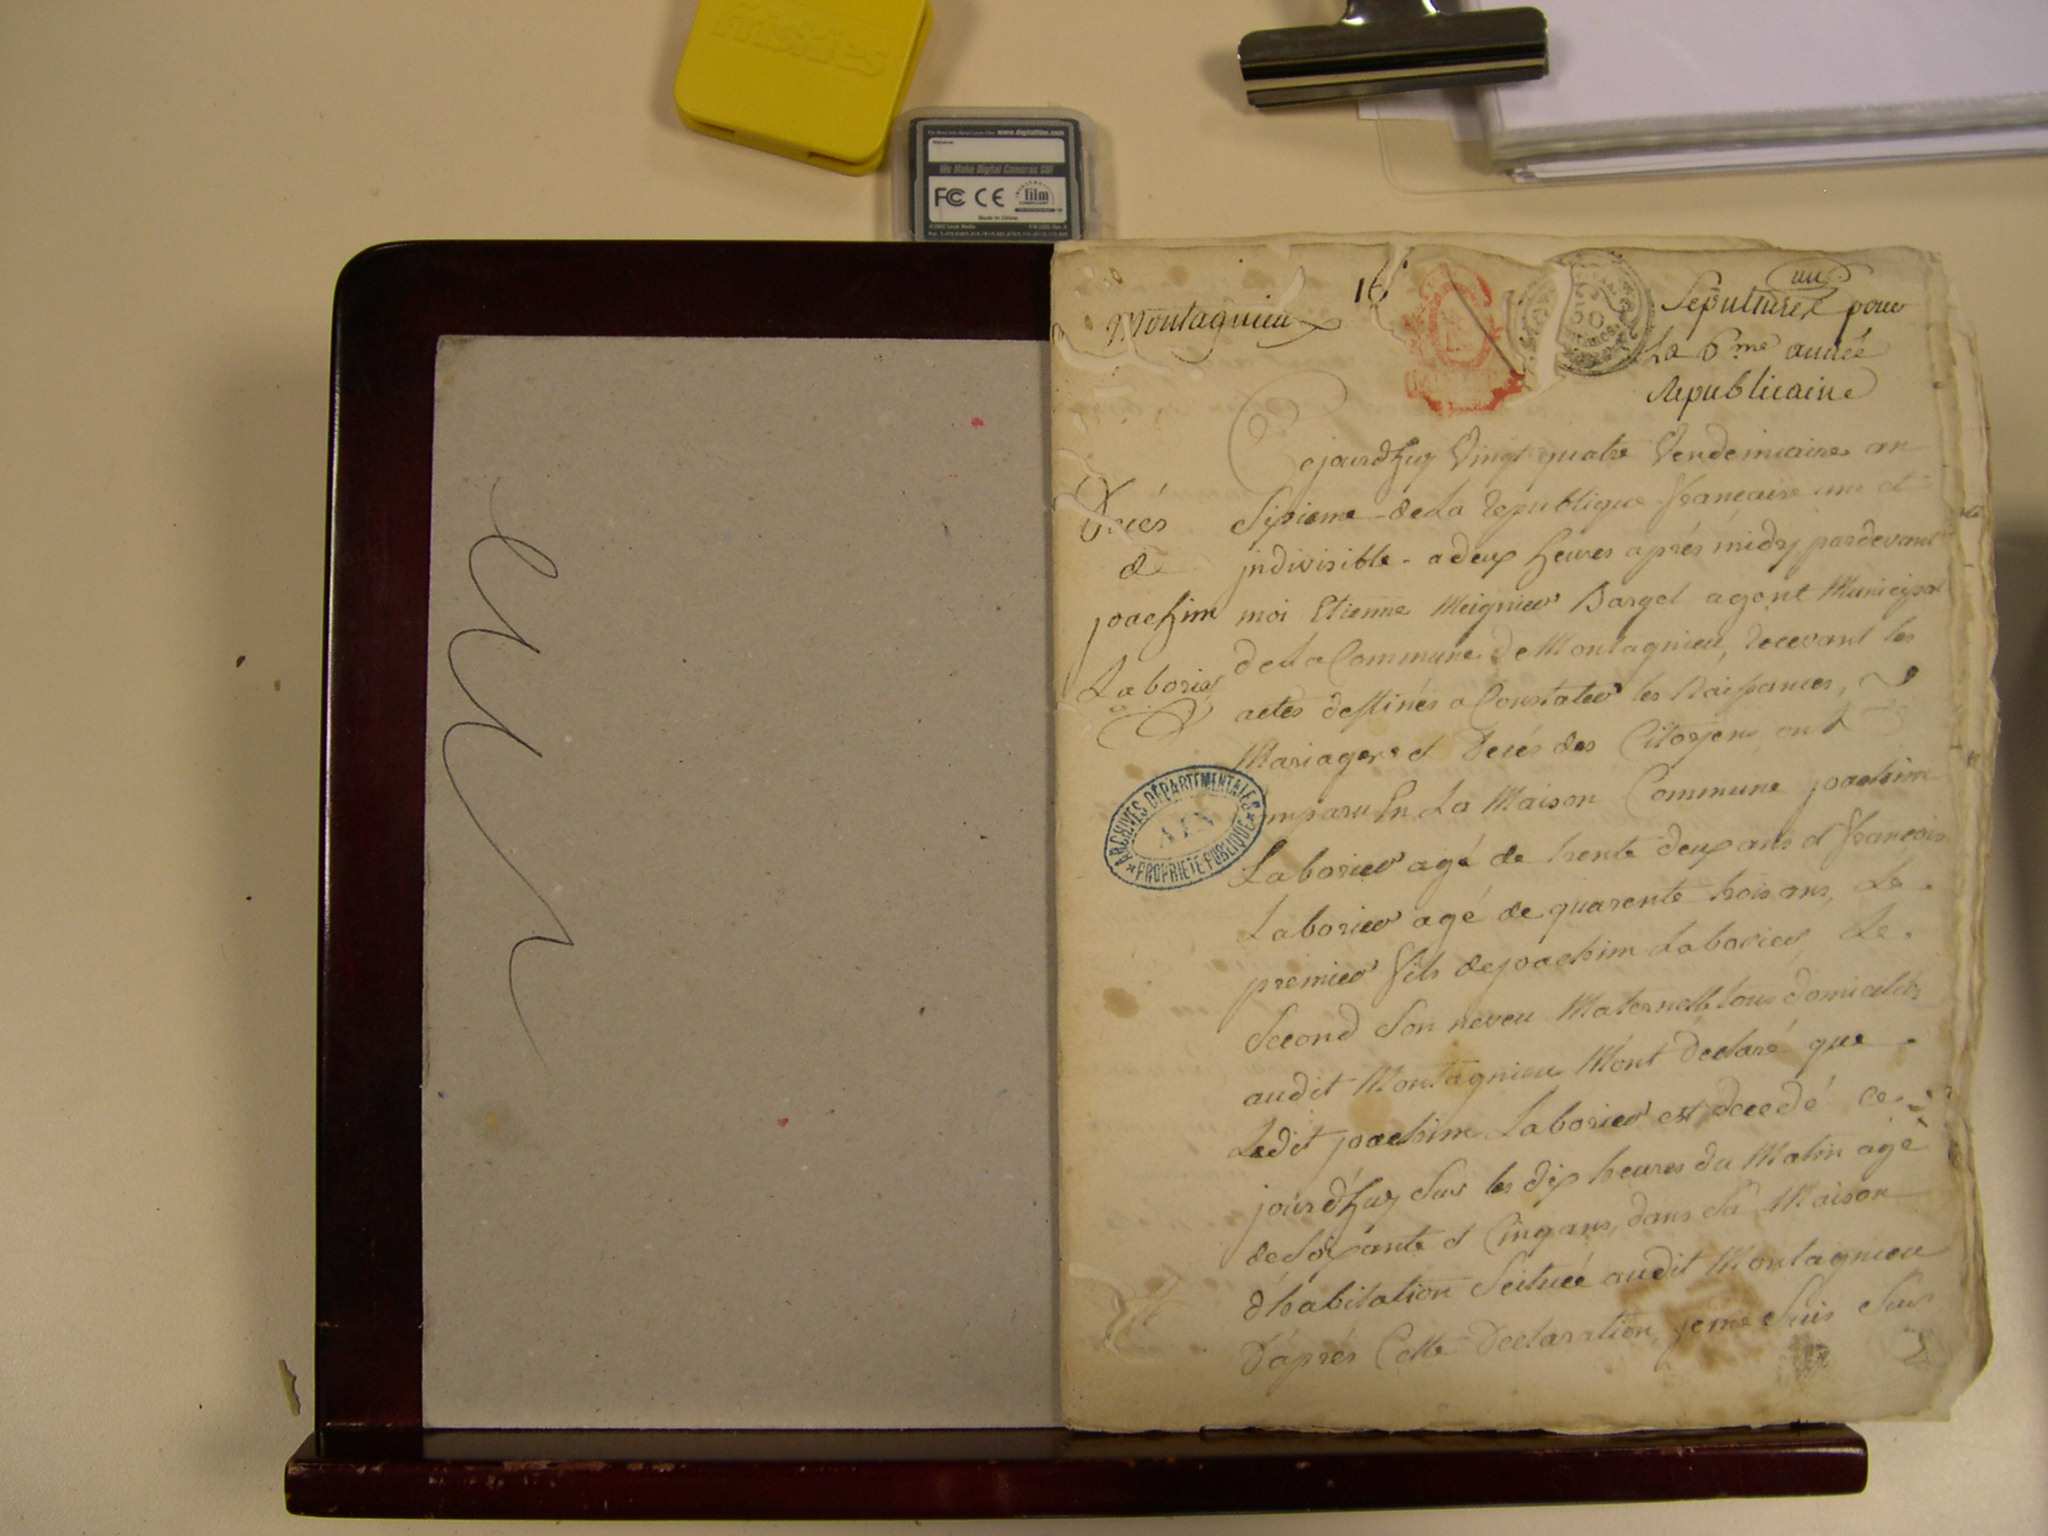 friskies
www.digitalfilm.com
We Make Digital Cameras GO!
FC CE film
Made in China
Montagnieu
16
Sepultures pour
La 6.me année
Republicaine
Décés
de
joachim
Laborier
Cejourdhuy Vingt quatre Vendemiaire an
Sixieme de La Republique francaise une et
jndivisible - a deux heures aprés midy pardevant
moi Etienne Meignier Barget agent Municipal
de La Commune de Montagnieu, recevant les
actes destinés a Constater les Naissances,
Mariages et Decés des Citoyens, ont
Comparu En La Maison Commune joachim
Laborier agé de trente deux ans et francois
Laborier agé de quarente trois ans, Le
premier fils de joachim Laborier, Le
Second Son neveu Maternelle tous domiciliés
audit Montagnieu M'ont déclaré que
Ledit joachim Laborier est décedé ce
jourdhuy Sur les dix heures du Matin agé
de Soixante et Cinq ans, dans Sa Maison
d'habitation Scituée audit Montagnieu
D'aprés Cette Declaration, je me Suis Sur
ARCHIVES DÉPARTEMENTALES
AIN
PROPRIÉTÉ PUBLIQUE